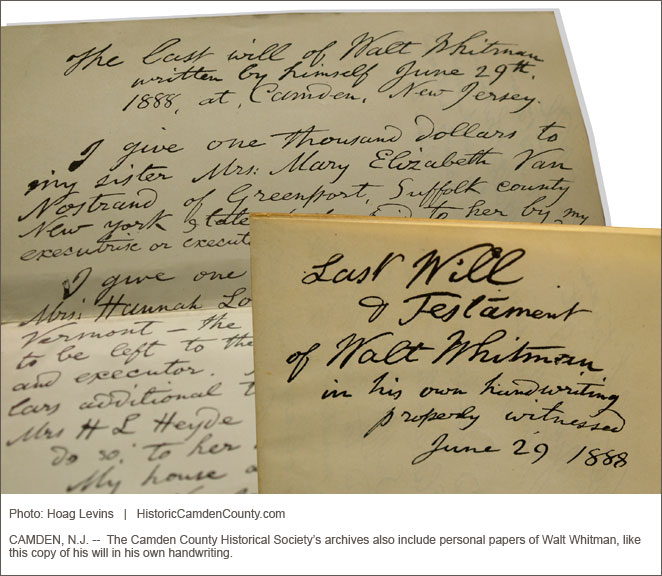 The last will of Walt Whitman
written by himself June 29th.
1888, at, Camden, New Jersey.
I give one thousand dollars to
my sister Mrs: Mary Elizabeth Van
Nostrand of Greenport, Suffolk county
New York State to her by my
executrix or
I give one
Mrs: Hannah
Vermont — the
to be left to the
and executor.
lars additional
Mrs H L Heyde
do so, to her
My house
Last Will
& Testament
of Walt Whitman
in his own handwriting
properly witnessed
June 29 1888
Photo: Hoag Levins | HistoricCamdenCounty.com
CAMDEN, N.J. -- The Camden County Historical Society's archives also include personal papers of Walt Whitman, like
this copy of his will in his own handwriting.